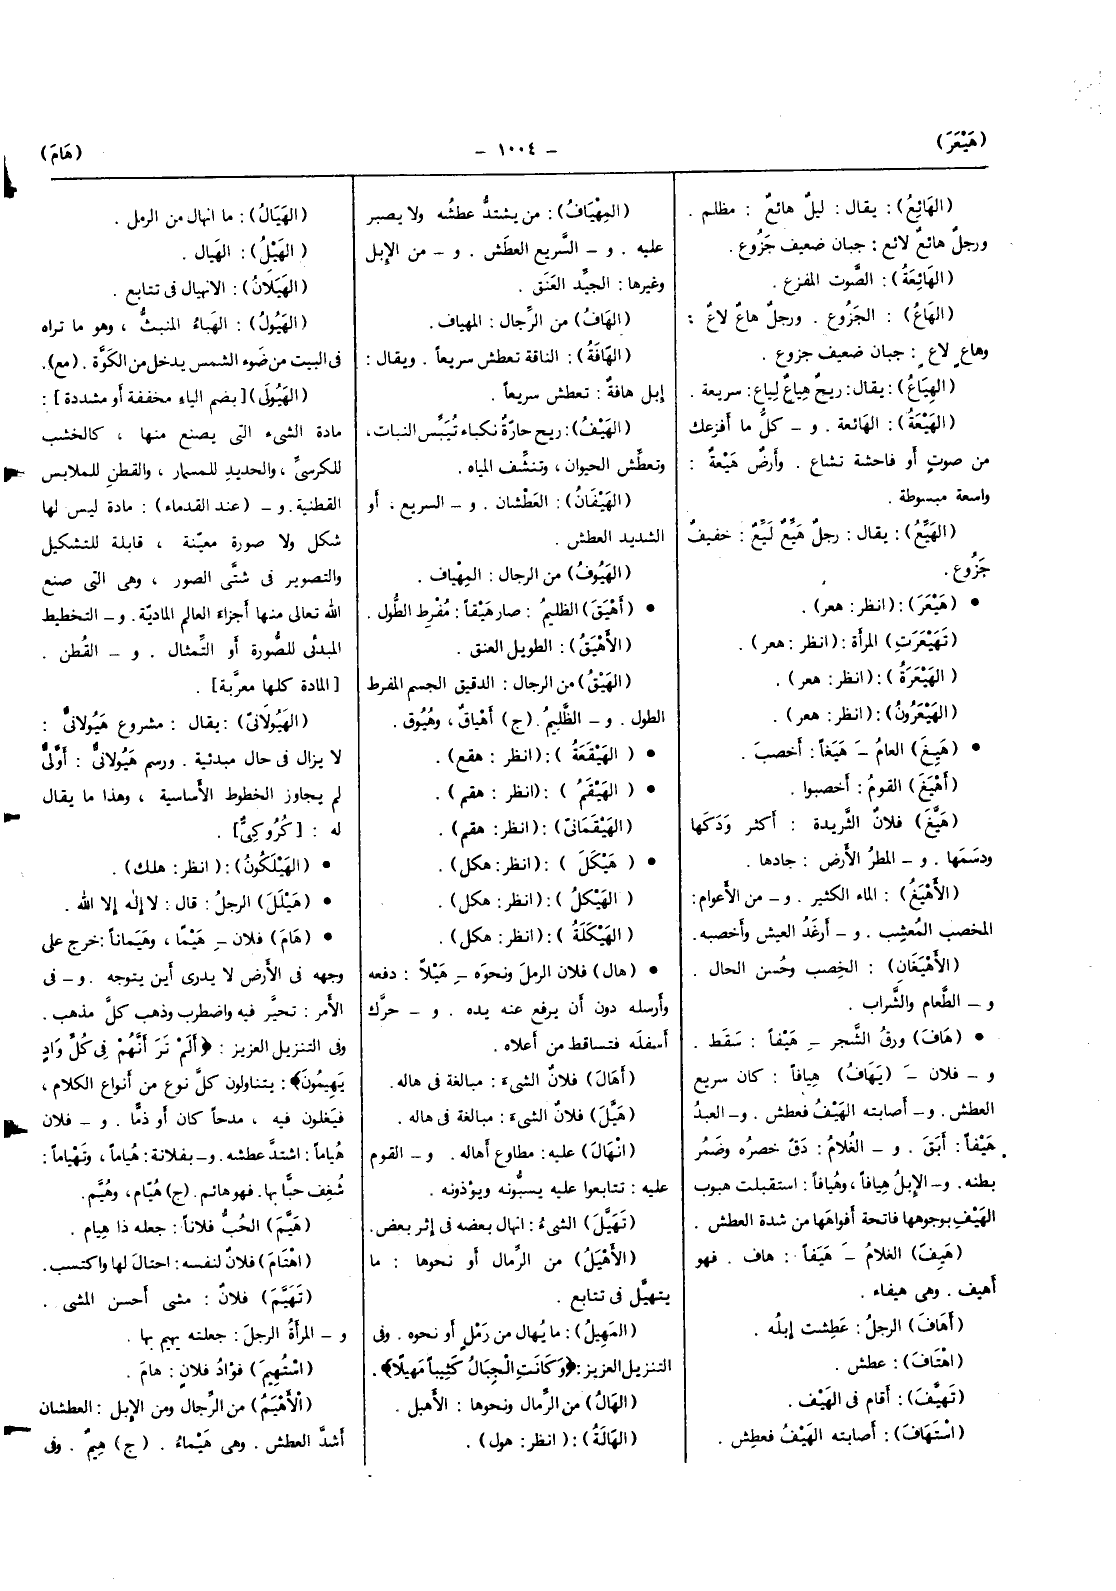 (هَيْعَرَ)
- ١٠٠٤ -
(هَامَ)
(الهَائِعُ): يقال: ليلٌ هائعٌ : مظلم .
ورجلٌ هائعٌ لائع : جبان ضعيف جَزُوع.
(الهَائِعَةُ): الصَّوت المفزع .
(الهَاعُ) : الجَزُوع . ورجلٌ هاعٌ لاعٌ :
وهاعٍ لاعٍ : جبان ضعيف جزوع .
(الهِيَاعُ): يقال: ريحٌ هِياعٌ لِياع: سريعة .
(الهَيْعَةُ): الهَائعة . و – كلُّ ما أَفزعك
من صوتٍ أَو فاحشة تشاع . وأَرضٌ هَيْعةٌ :
واسعة مبسوطة .
(الهَيِّعُ): يقال: رجلٌ هَيِّعٌ لَيِّعٌ : خفيفٌ
جَزُوع .
• (هَيْعَرَ): (انظر: هعر).
(تَهَيْعَرَتِ) المرأَة : (انظر: هعر) .
(الهَيْعَرَةُ): (انظر: هعر) .
(الهَيْعَرُونُ): (انظر: هعر) .
• (هَيِغَ) العامُ –َ هَيَغاً: أَخصبَ .
(أَهْيَغَ) القومُ: أَخصبوا .
(هَيَّغَ) فلانٌ الثَّريدة : أَكثر وَدَكَها
ودسَمَها . و – المطرُ الأَرضَ : جادها .
(الأَهْيَغُ) : الماء الكثير . و – من الأَعوام:
المخصب المُعشِب . و – أَرغَدُ العيش وأَخصبه.
(الأَهْيَغَانِ) : الخِصب وحُسن الحال .
و – الطَّعام والشَّراب .
• (هَافَ) ورقُ الشَّجر –ِ هَيْفاً : سَقَط .
و – فلان –َ (يَهَافُ) هِيافاً : كان سريع
العطش . و – أَصابته الهَيْفُ فعطش . و – العبدُ
هَيْفاً: أَبَقَ . و – الغُلامُ: دَقَّ خصرُه وضَمُر
بطنه . و – الإبلُ هِيافاً ، وهُيافاً: استقبلت هبوب
الهَيْفِ بوجوهها فاتحة أَفواهَها من شدة العطش .
(هَيِفَ) الغلامُ –َ هَيَفاً : هاف . فهو
أَهيف . وهى هيفاء .
(أَهَافَ) الرجلُ: عَطِشت إبلُه .
(اهْتَافَ): عطش .
(تَهَيَّفَ): أَقام فى الهَيْف .
(اسْتَهَافَ): أَصابته الهَيْفُ فعطِش .
(المِهْيَافُ): من يشتدُّ عطشُه ولا يصبر
عليه . و – السَّريع العطَش . و – من الإبل
وغيرها: الجيِّد العَنَق .
(الهَافُ) من الرِّجال: المهياف .
(الهَافَةُ): الناقة تعطش سريعاً . ويقال :
إبل هافةٌ: تعطش سريعاً .
(الهَيْفُ): ريح حارّة نكباء تُيَبِّس النبات،
وتعطِّش الحيوان ، وتنشِّف المياه .
(الهَيْفَانُ): العَطْشان . و – السريع ، أَو
الشديد العطش .
(الهَيُوفُ) من الرجال: المِهْياف .
• (أَهْيَقَ) الظليمُ : صار هَيْقاً: مُفْرِط الطُّول .
(الأَهْيَقُ): الطويل العنق .
(الهَيْقُ) من الرجال : الدقيق الجسم المفرط
الطول . و – الظَّليمُ . (ج) أَهْياقٌ ، وهُيُوق .
• (الهَيْقَعَةُ): (انظر: هقع) .
• (الهَيْقَمُ): (انظر: هقم) .
(الهَيْقَمَانىّ): (انظر: هقم) .
• (هَيْكَلَ): (انظر: هكل) .
(الهَيْكلُ): (انظر: هكل) .
(الهَيْكَلَةُ): (انظر: هكل) .
• (هال) فلان الرملَ ونحوَه –ِ هَيْلاً : دفعه
وأَرسله دون أَن يرفع عنه يده . و – حرَّك
أَسفلَه فتساقط من أعلاه .
(أَهَالَ) فلانٌ الشىءَ : مبالغة فى هاله.
(هَيَّلَ) فلانٌ الشىءَ: مبالغة فى هاله.
(انْهَالَ) عليه: مطاوع أَهاله . و – القوم
عليه : تتابعوا عليه يسبُّونه ويؤذونه .
(تَهَيَّلَ) الشىءُ: انهال بعضه فى إثر بعض.
(الأَهْيَلُ) من الرِّمال أَو نحوها : ما
يتهيَّل فى تتابع .
(المَهِيلُ): ما يُهال من رَمْلٍ أَو نحوه . وفى
التنزيل العزيز: ﴿وَكَانَتِ الْجِبَالُ كَثِيباً مَهِيلًا﴾ .
(الهَالُ) من الرِّمال ونحوها : الأَهيل .
(الهَالَةُ): (انظر: هول) .
(الهَيَالُ): ما انهال من الرمل .
(الهَيْلُ): الهَيال .
(الهَيَلَانُ): الانهيال فى تتابع .
(الهَيُولُ): الهَباءُ المنبثُّ ، وهو ما تراه
فى البيت من ضَوء الشمس يدخل من الكَوَّة . (مع).
(الهَيُولَى) [بضم الياءِ مخففة أَو مشددة] :
مادة الشىء التى يصنع منها ، كالخشب
للكرسىِّ ، والحديدِ للمسمار ، والقطنِ للملابس
القطنية . و – (عند القدماء) : مادة ليس لها
شكل ولا صورة معيّنة ، قابلة للتشكيل
والتصوير فى شتَّى الصور ، وهى التى صنع
الله تعالى منها أَجزاء العالم الماديّة . و – التخطيط
المبدئى للصُّورة أَو التِّمثال . و – القُطن .
[المادة كلها معرَّبة] .
(الهَيُولَانىّ): يقال : مشروع هَيُولانىٌّ :
لا يزال فى حال مبدئية . ورسم هَيُولانىٌّ : أَوَّلىٌّ
لم يجاوز الخطوط الأَساسية ، وهذا ما يقال
له : [كُرُوكِىٌّ] .
• (الهَيْلَكُونُ): (انظر: هلك) .
• (هَيْلَلَ) الرجلُ: قال: لا إلٰه إلا الله .
• (هَامَ) فلان –ِ هَيْمًا ، وهَيَماناً: خرج على
وجهه فى الأَرض لا يدرى أَين يتوجه . و – فى
الأَمر: تحيَّر فيه واضطرب وذهب كلَّ مذهب.
وفى التنزيل العزيز : ﴿أَلَمْ تَرَ أَنَّهُمْ فِى كُلِّ وَادٍ
يَهِيمُونَ﴾: يتناولون كلَّ نوع من أنواع الكلام ،
فيَغلون فيه ، مدحاً كان أَو ذمًّا . و – فلان
هُياماً: اشتدَّ عطشه . و – بفلانة: هُياماً ، وتَهْياماً:
شُغِف حبًّا بها. فهو هائم . (ج) هُيّام ، وهُيَّم .
(هَيَّمَ) الحُبُّ فلاناً: جعله ذا هِيام .
(اهْتَامَ) فلانٌ لنفسه: احتالَ لها واكتسب.
(تَهَيَّمَ) فلانٌ : مشى أَحسن المشى .
و – المرأَةُ الرجلَ: جعلته يهيم بها .
(اسْتُهِيمَ) فؤادُ فلانٍ: هامَ .
(الْأَهْيَمُ) من الرِّجال ومن الإبل : العطشان
أَشدَّ العطش . وهى هَيْماءُ . (ج) هِيمٌ . وفى